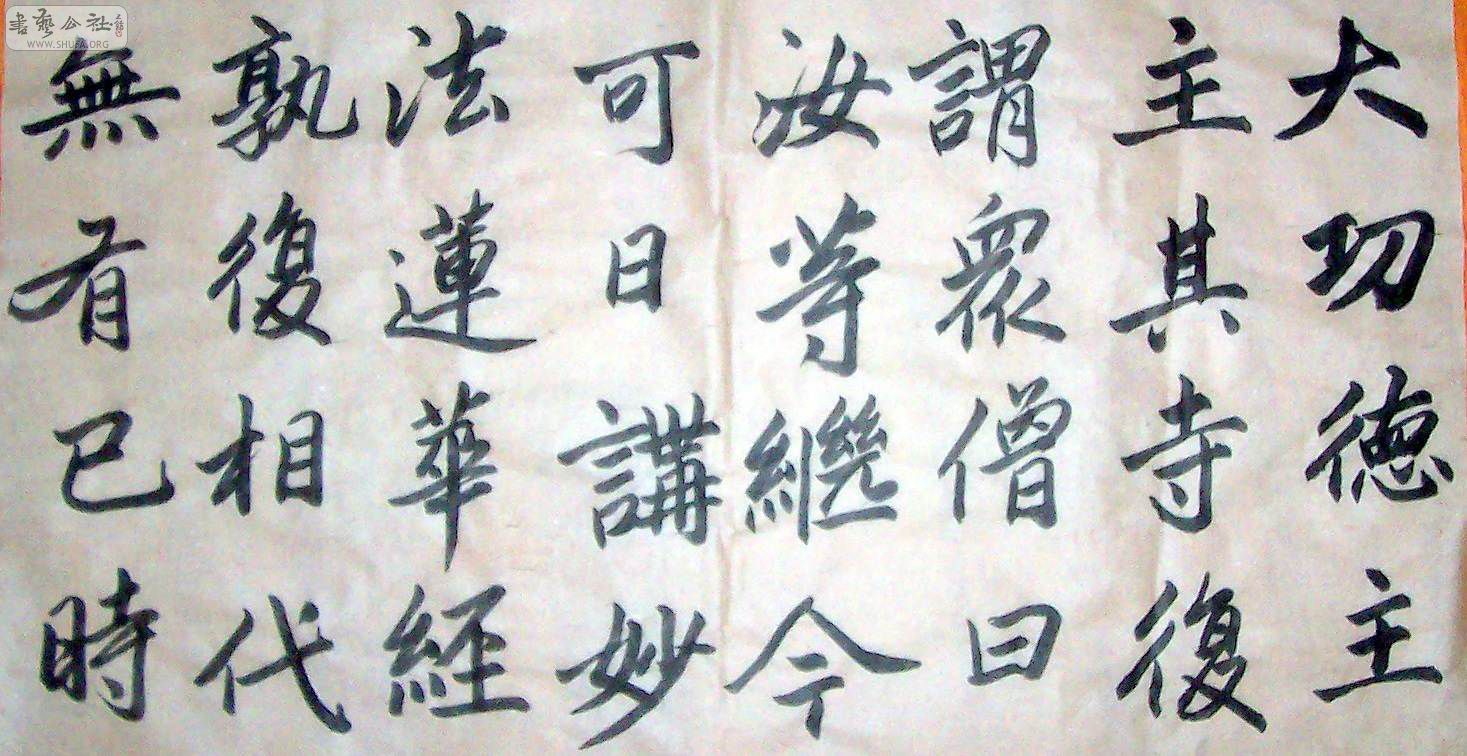 大功德主
主其寺復
謂眾僧曰
汝等繼今
可日講妙
法蓮華經
孰復相代
無有已時
書藝公社
WWW.SHUFA.ORG